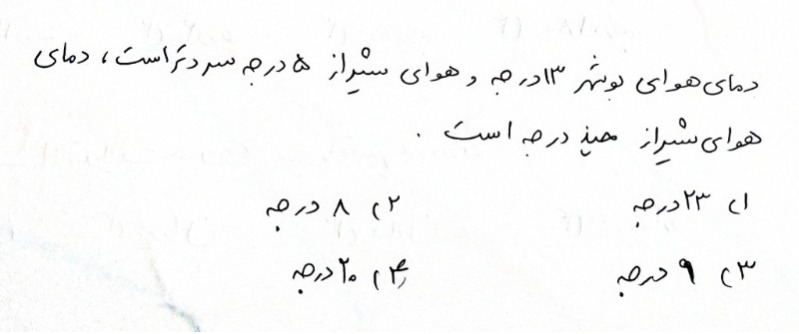 دمای هوای بوشهر ۱۳ درجه و هوای شیراز ۵ درجه سردتر است، دمای
هوای شیراز چند درجه است.
۱) ۲۳ درجه ۲) ۸ درجه
۳) ۹ درجه ۴) ۲۰ درجه